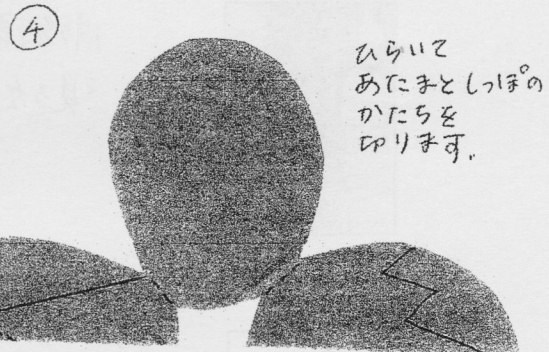 ④
ひらいて
あたまとしっぽの
かたちを
切ります。